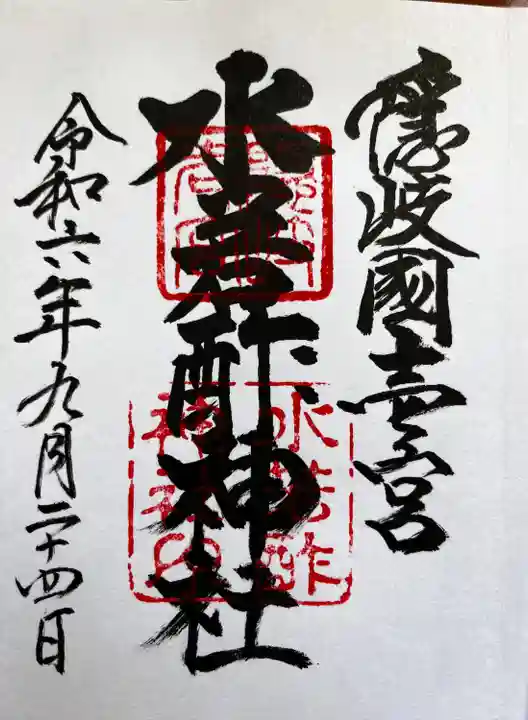 隠岐國壹宮
水若酢神社
水若酢
神社印
令和六年九月二十四日